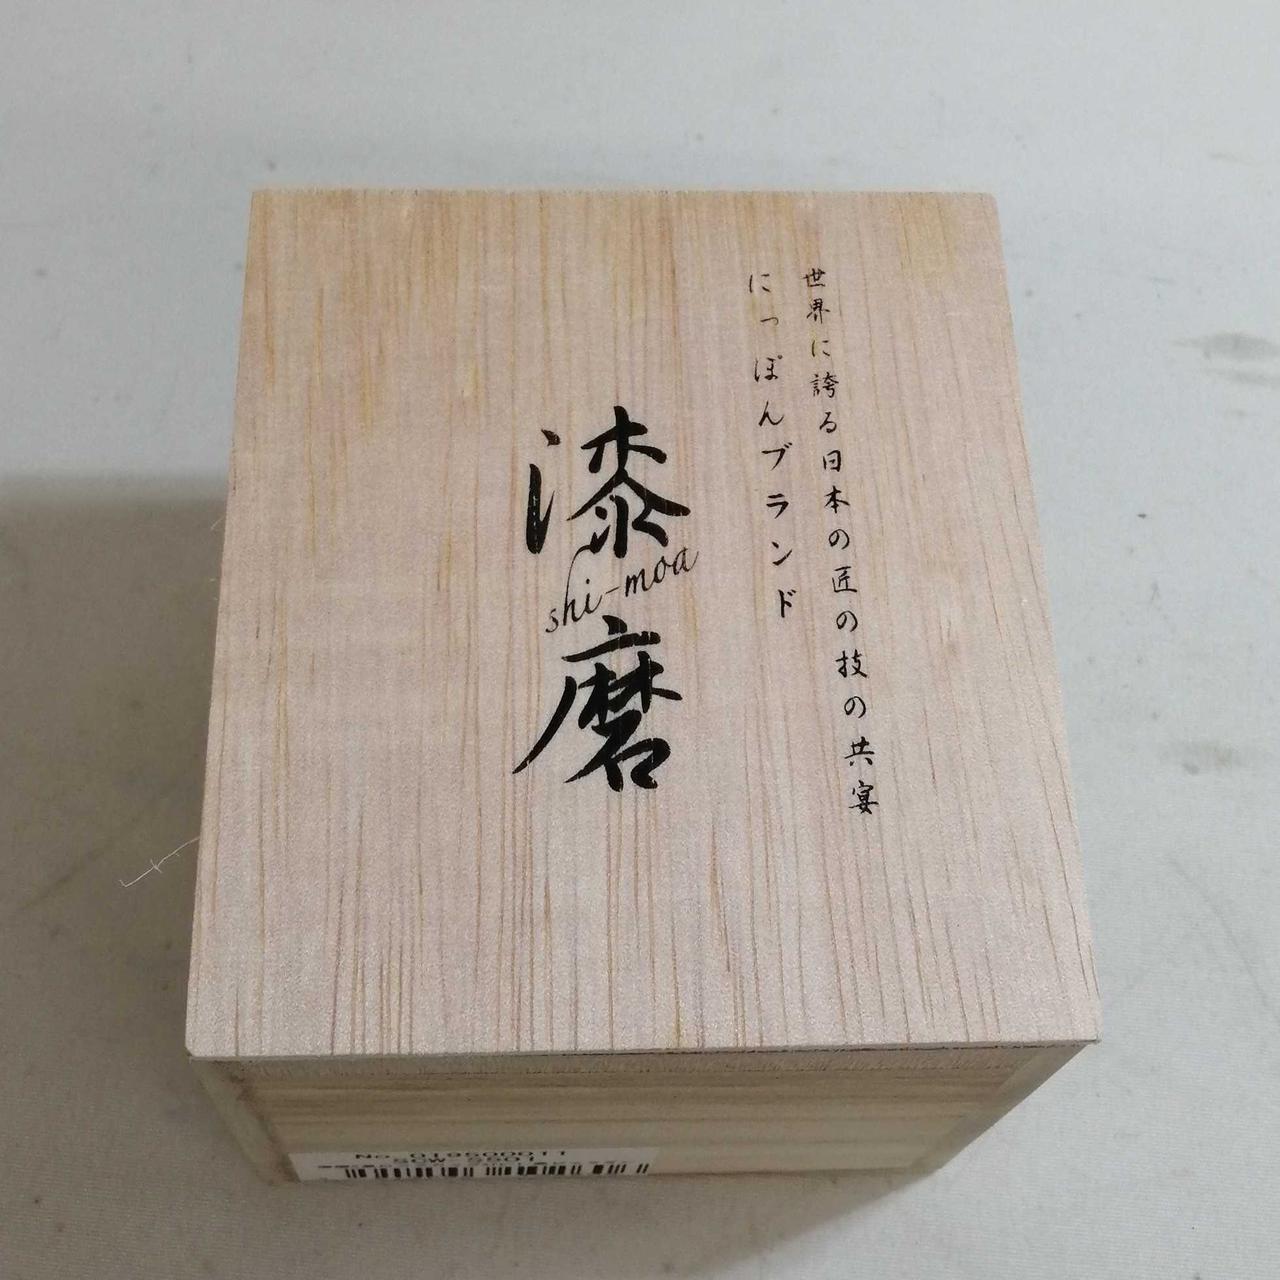 世界に誇る日本の匠の技の共宴
にっぽんブランド
漆
shi-moa
磨
No. 019500011
SCW-S501